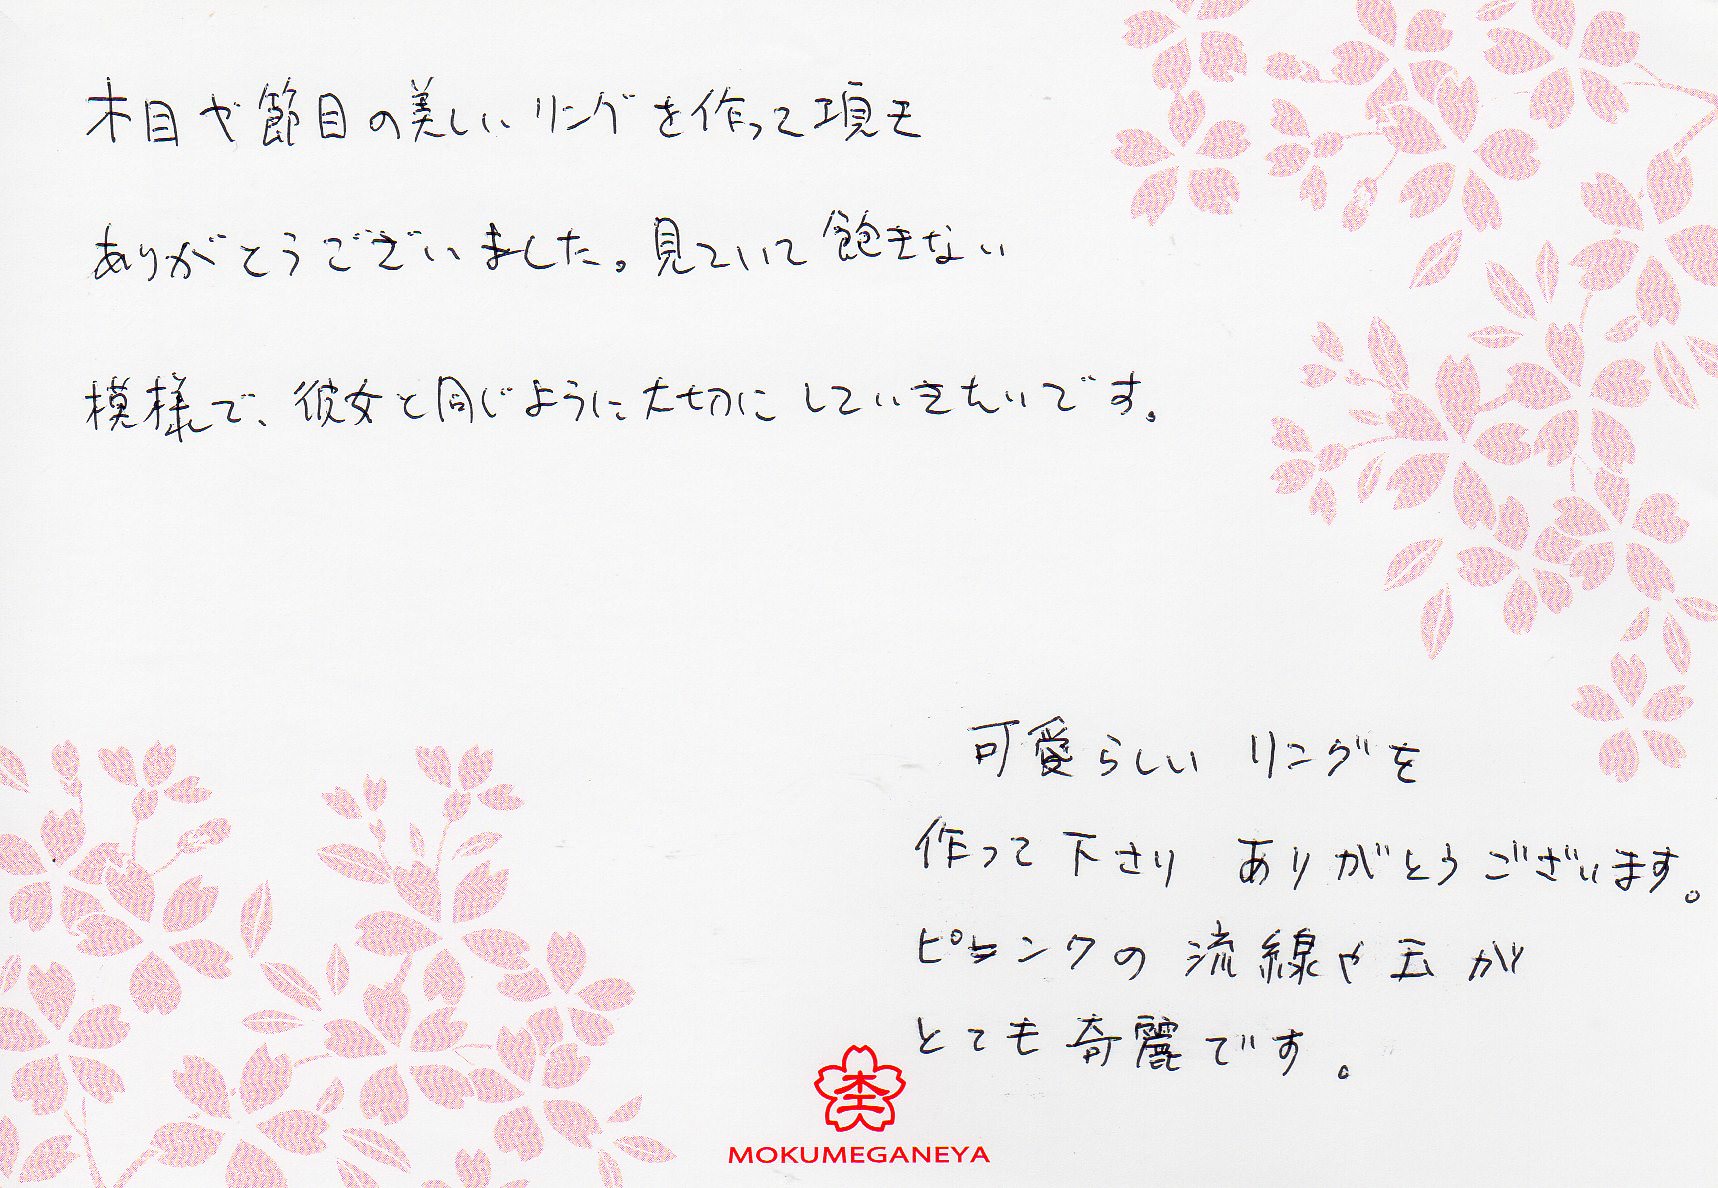 木目や節目の美しいリングを作って項き
ありがとうございました。見ていて飽きない
模様で、彼女と同じように大切にしていきたいです。
可愛らしいリングを
作って下さり ありがとうございます。
ピンクの流線や玉が
とても奇麗です。
MOKUMEGANEYA